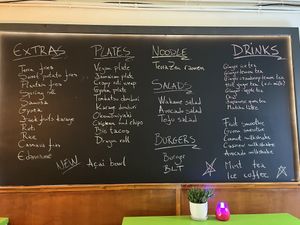 EXTRAS
Taro fries
Sweet potato fries
Plantain fries
Spring roll
Samosa
Gyoza
Jackfruits karage
Roti
Rice
Cassava fries
Edamame
NEW
Açai bowl
PLATES
Vegan plate
Jamaican plate
Crazy roll wrap
Gyoza plate
Tonkatsu donburi
Karaage donburi
Okonomiyaki
Chicken and chips
Big tacos
Dragon roll
NOODLE
ramen
SALADS
Wakame salad
Avocado salad
Tofu salad
BURGERS
Burger
BLT
DRINKS
Ginger ice tea
Ginger lemon tea
Ginger cranberry lemon tea
Ginger apple tea
Chai
Japanese green tea
Matcha latte
Fruit smoothie
Green smoothie
Coconut milkshake
Cashew milkshake
Avocado milkshake
Mint tea
Ice coffee